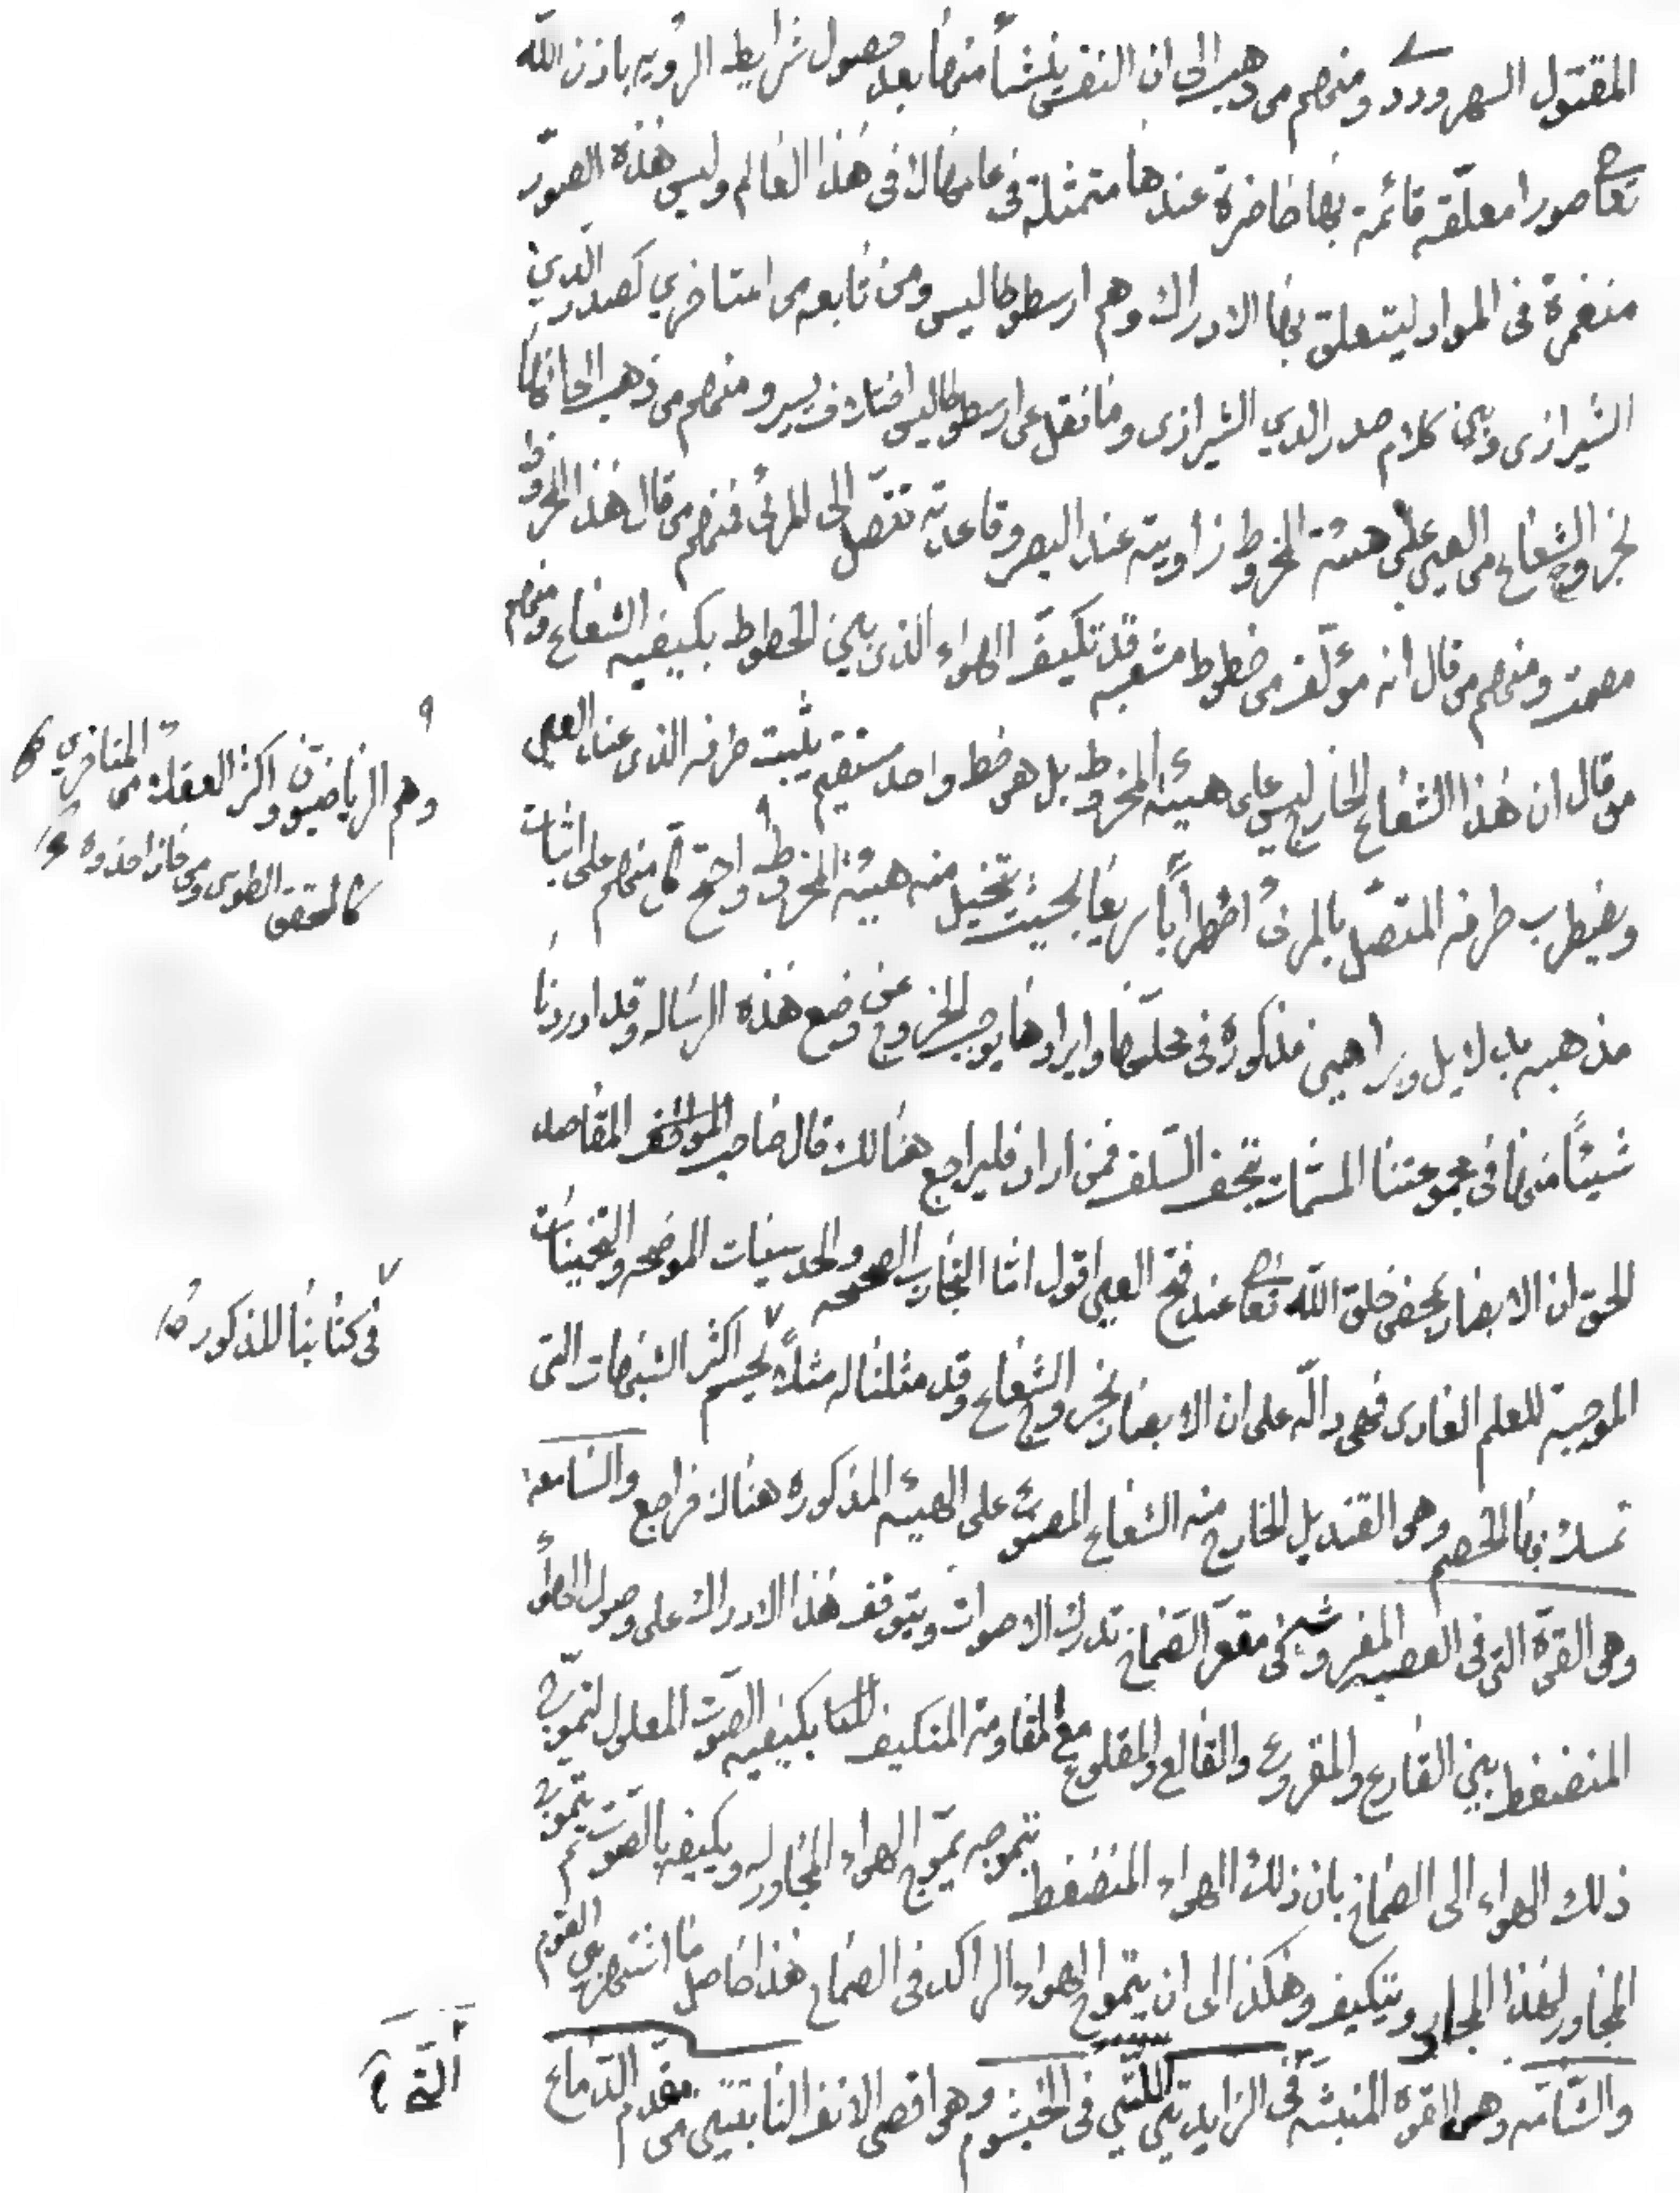 المقتول السهروردي ومنهم من ذهب الى ان النفس ينشأ منها بعد حصول شرايط الرؤيه باذن الله
تعا صورا معلّقه قائمة بها حاضرة عندها متمثلة فى عالمها لا فى هذا العالم وليس هذه الصور
منغمرة فى المواد ليتعلق بها الادراك وهم ارسطوطاليس ومن تابعه من المتاخرين كصدر الدين
الشيرازى وبين كلام صدر الدين الشيرازى وما نقل عن ارسطوطاليس اختلاف يسير ومنهم من ذهب الى انها
بخروج الشعاع من العين على هيئة المخروط زاويته عند البصر وقاعدته تتصل الى المرئى فمنهم من قال هذا المخروط
مصمت ومنهم من قال انه مؤلّف من خطوط مشعبه قد تكيّف الهواء الذى بين الخطوط بكيفيه الشعاع ومنهم
من قال ان هذا الشعاع الخارج ليس على هيئه المخروط بل هو خط واحد مستقيم يثبت طرفه الذى عند العين
ويضطرب طرفه المتصل بالمرئى اضطرابًا سريعًا بحيث يتخيل منه هيئة المخروط واحتج كل منهم على اثبات
مذهبه بدلايل وبراهين مذكورة فى محلّها وايرادها يوجب الخروج عن وضع هذه الرساله وقد اوردنا
شيئًا منها فى مجموعتنا المسمات بتحف السّلف فمن اراد فليراجع هنالك قال صاحب المواقف المقاصد
الحق ان الابصار بمحض خلق الله تعا عند فتح العين اقول امّا التجارب الصحيحه والحدسيات الموضحه والتخمينات
الموجبة للعلم العادى فهى دالّه على ان الابصار بخروج الشعاع وقد مثلنا له مثلًا يحسم اكثر الشبهات التى
تمسك بها الخصم وهو القنديل الخارج منه الشعاع المصوّت على الهيئه المذكوره هناك فراجع والسّامعه
وهى القوّة التى فى العصبه المفروشه فى مقعّر الصّماخ تدرك الاصوات ويتوقف هذا الادراك على وصول الهواء
المنضغط بين القارع والمقروع والقالع والمقلوع مع المقاومة المتكيف بكيفيه الصّوت المعلول لتموّج
ذلك الهواء الى الصّماخ بان ذلك الهواء المنضغط بتموجه يموّج الهواء المجاور له ويكيفه بالصّوت ثم يتموّج
المجاور لهذا المجاور ويتكيف وهكذا الى ان يتموج الهواء الراكد فى الصماخ هذا حاصل ما اشتهر من القوم
والشّامّه وهى القوة المنبثّه فى الزايدتين اللتين فى الخيشوم وهو اقصى الانف النابتتين من مقدم الدّماغ
٩
وهم الرياضيّون واكثر العقلاء من المتاخرين
كالمحقق الطوسى ومن حاز حذوه
٧
فى كتابنا المذكور